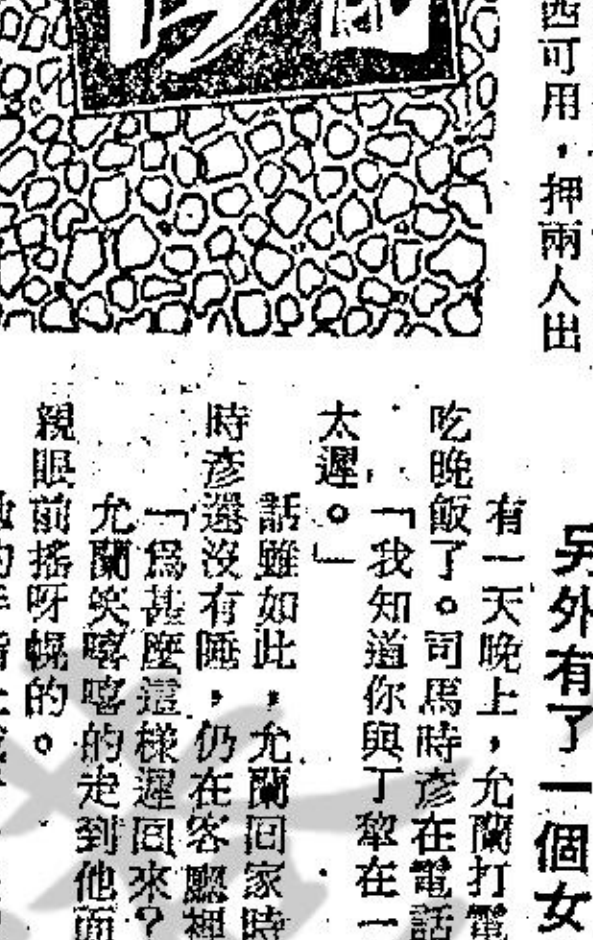 西可用，押兩人出
另外有了一個女
有一天晚上，允蘭打電
吃晚飯了。司馬時彥在電話
「我知道你與丁犂在一
太遲。」
話雖如此，允蘭回家時
時彥還沒有睡，仍在客廳裡
「爲甚麼這樣遲回來？
允蘭笑嘻嘻的走到他面
親眼前搖呀幌的。